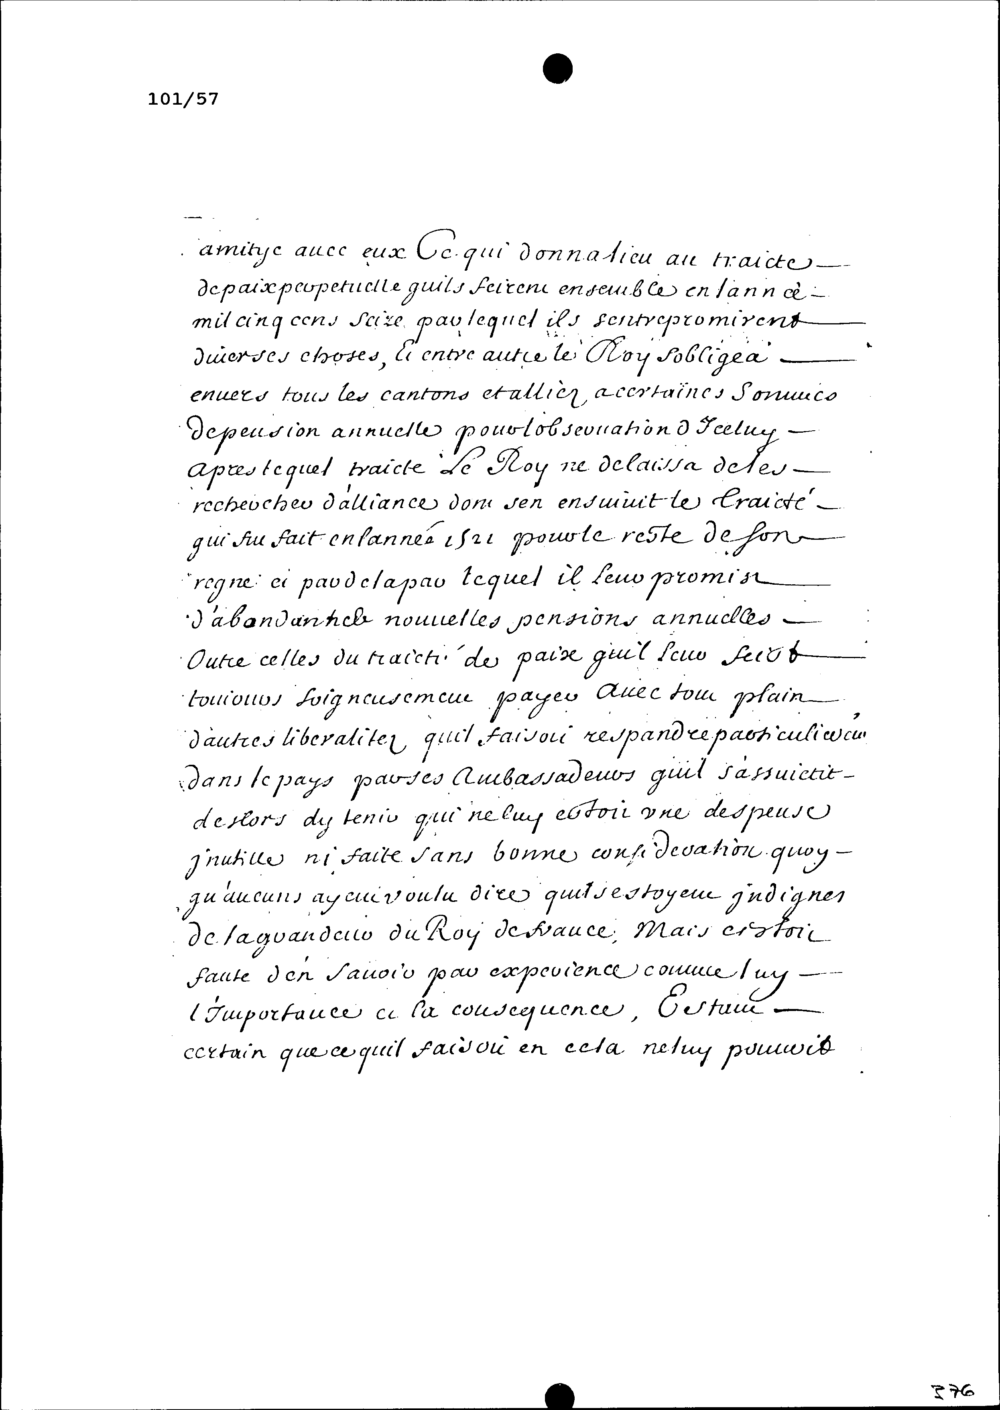 101/57
amitye auec eux Ce qui donna lieu au traicte
de paix perpetuelle quils feirent ensemble en lannée
mil cinq cens seize par lequel ils sentrepromirent
diuerses choses, Et entre autre le Roy sobligea
enuers tous les cantons et alliez a certaines Sommes
de pension annuelle pour lobseruation d Iceluy
Apres lequel traicte Le Roy ne delaissa de les
rechercher d'alliance dont sen ensuiuit le traicté
qui fut fait en lannée 1521 pour le reste de son
regne et par de la par lequel il leur promist
d'abondant de nouuelles pensions annuelles
Outre celles du traicté de paix quil leur feist
tousiours soigneusement payer Auec tout plain
d'autres liberalitez quil faisoit respandre particulierem
dans le pays par ses Ambassadeurs quil s'assuietit
deslors dy tenir qui ne luy estoit vne despense
jnutille ni faite sans bonne consideration quoy
qu'aucuns ayent voulu dire quils estoyent jndignes
de la grandeur du Roy de france, Mais cestoit
faute d'en sauoir par experience comme luy
l'Importance et la consequence, Estant
certain que ce quil faisoit en cela ne luy pouuoit
376